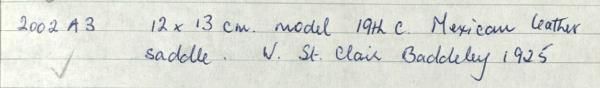 2002 A3 12 x 13 cm. model 19th c. Mexican leather
saddle. W. St. Clair Baddeley 1925